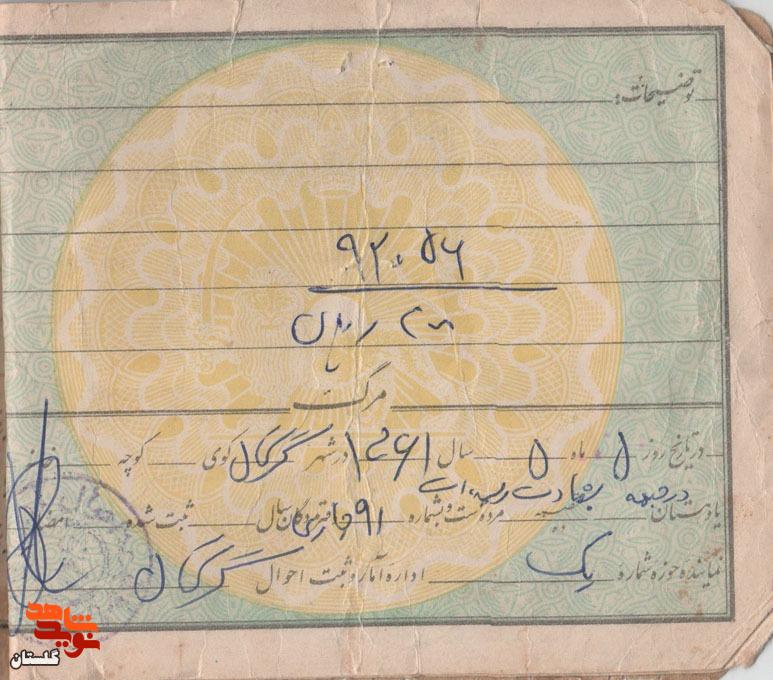 توضیحات:
۹۲۰۵۶
۲۰۰ ریال
مرگ
در تاریخ روز ۵ ماه ۵ سال ۱۳۶۱ در شهر گرگان کوی کوچه
در جبهه بشهادت رسیده است
یا دهستان مرده است و بشماره ۹۱ دفتر مردگان سال ثبت شده امضاء
نماینده حوزه شماره یک اداره آمار و ثبت احوال گرگان
نوید شاهد
گلستان